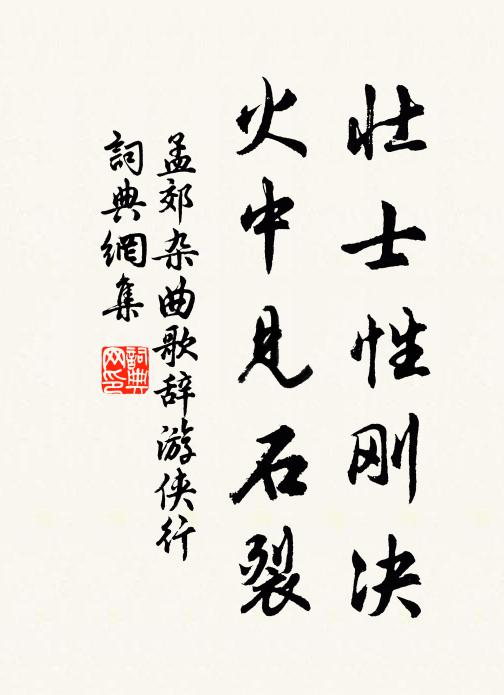 壮士性刚决
火中见石裂
孟郊杂曲歌辞游侠行
詞典網集
詞典网印